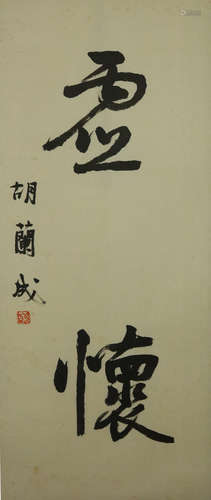 虛懷
胡蘭成